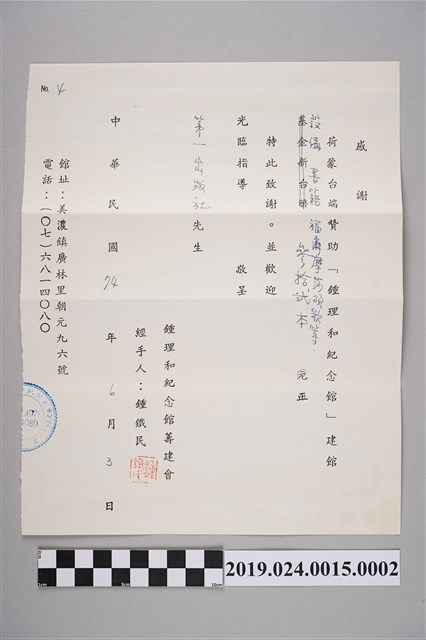 感謝
荷蒙台端贊助「鍾理和紀念館」建館
設備 書籍 福爾摩莎頌歌等.
基金新台幣 參拾弍本 元正
特此致謝。並歡迎
光臨指導 敬呈
第一出版社先生
鍾理和紀念館籌建會
經手人：鍾鐵民
中華民國74年6月3日
館址：美濃鎮廣林里朝元九六號
電話：（〇七）六八一四〇八〇
No. 4
1cm 5cm 10cm
2019.024.0015.0002